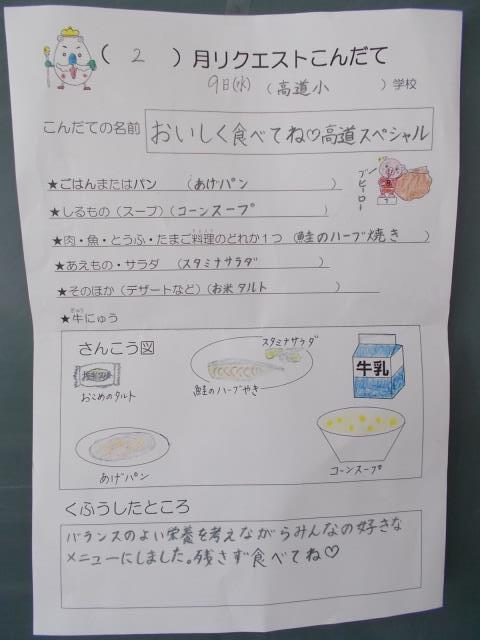 ( 2 )月リクエストこんだて
9日(水) (高道小 )学校
こんだての名前 おいしく食べてね♡高道スペシャル
★ごはんまたはパン (あげパン )
ブヒーロー
★しるもの(スープ)(コーンスープ )
★肉・魚・とうふ・たまご料理のどれか1つ (鮭のハーブ焼き )
★あえもの・サラダ (スタミナサラダ )
★そのほか(デザートなど)(お米タルト )
★牛にゅう
さんこう図
スタミナサラダ
牛乳
おこめのタルト
鮭のハーブやき
あげパン
コーンスープ
くふうしたところ
バランスのよい栄養を考えながらみんなの好きな
メニューにしました。残さず食べてね♡